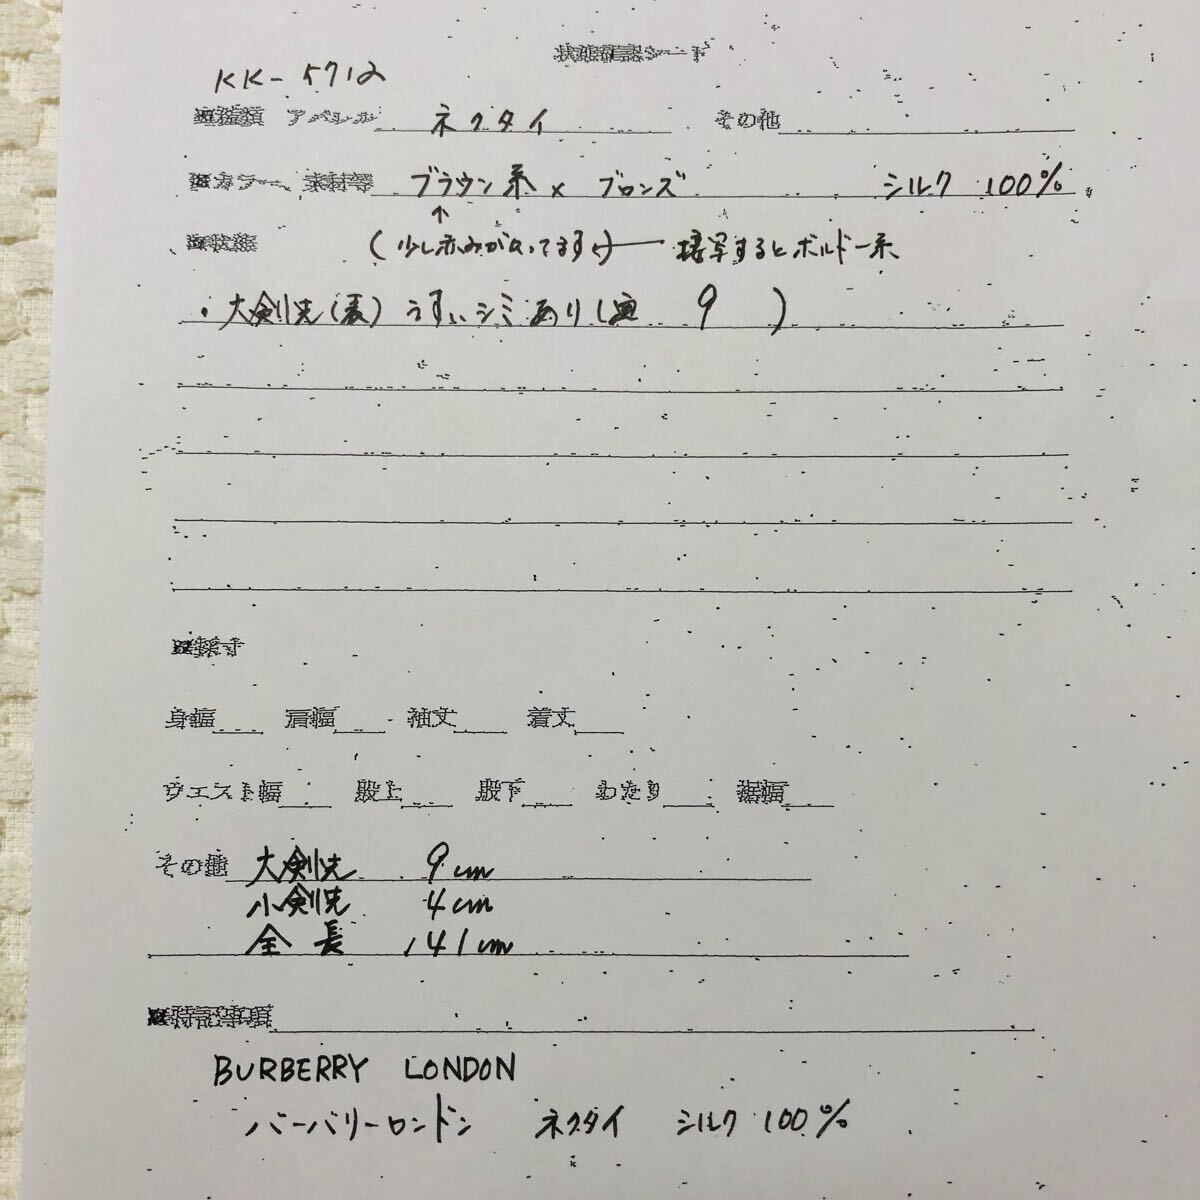 状態確認シート
KK-5712
■種類 アパレル ネクタイ その他
■カラー、素材等 ブラウン系 × ブロンズ シルク 100%
↑
■状態 (少し赤みが入ってます。) 接写するとボルドー系
・大剣先(表) うすいシミあり( 9 )
■採寸
身幅 肩幅 袖丈 着丈
ウエスト幅 股上 股下 わたり 裾幅
その他 大剣先 9cm
小剣先 4cm
全長 141cm
■特記事項
BURBERRY LONDON
バーバリーロンドン ネクタイ シルク 100%